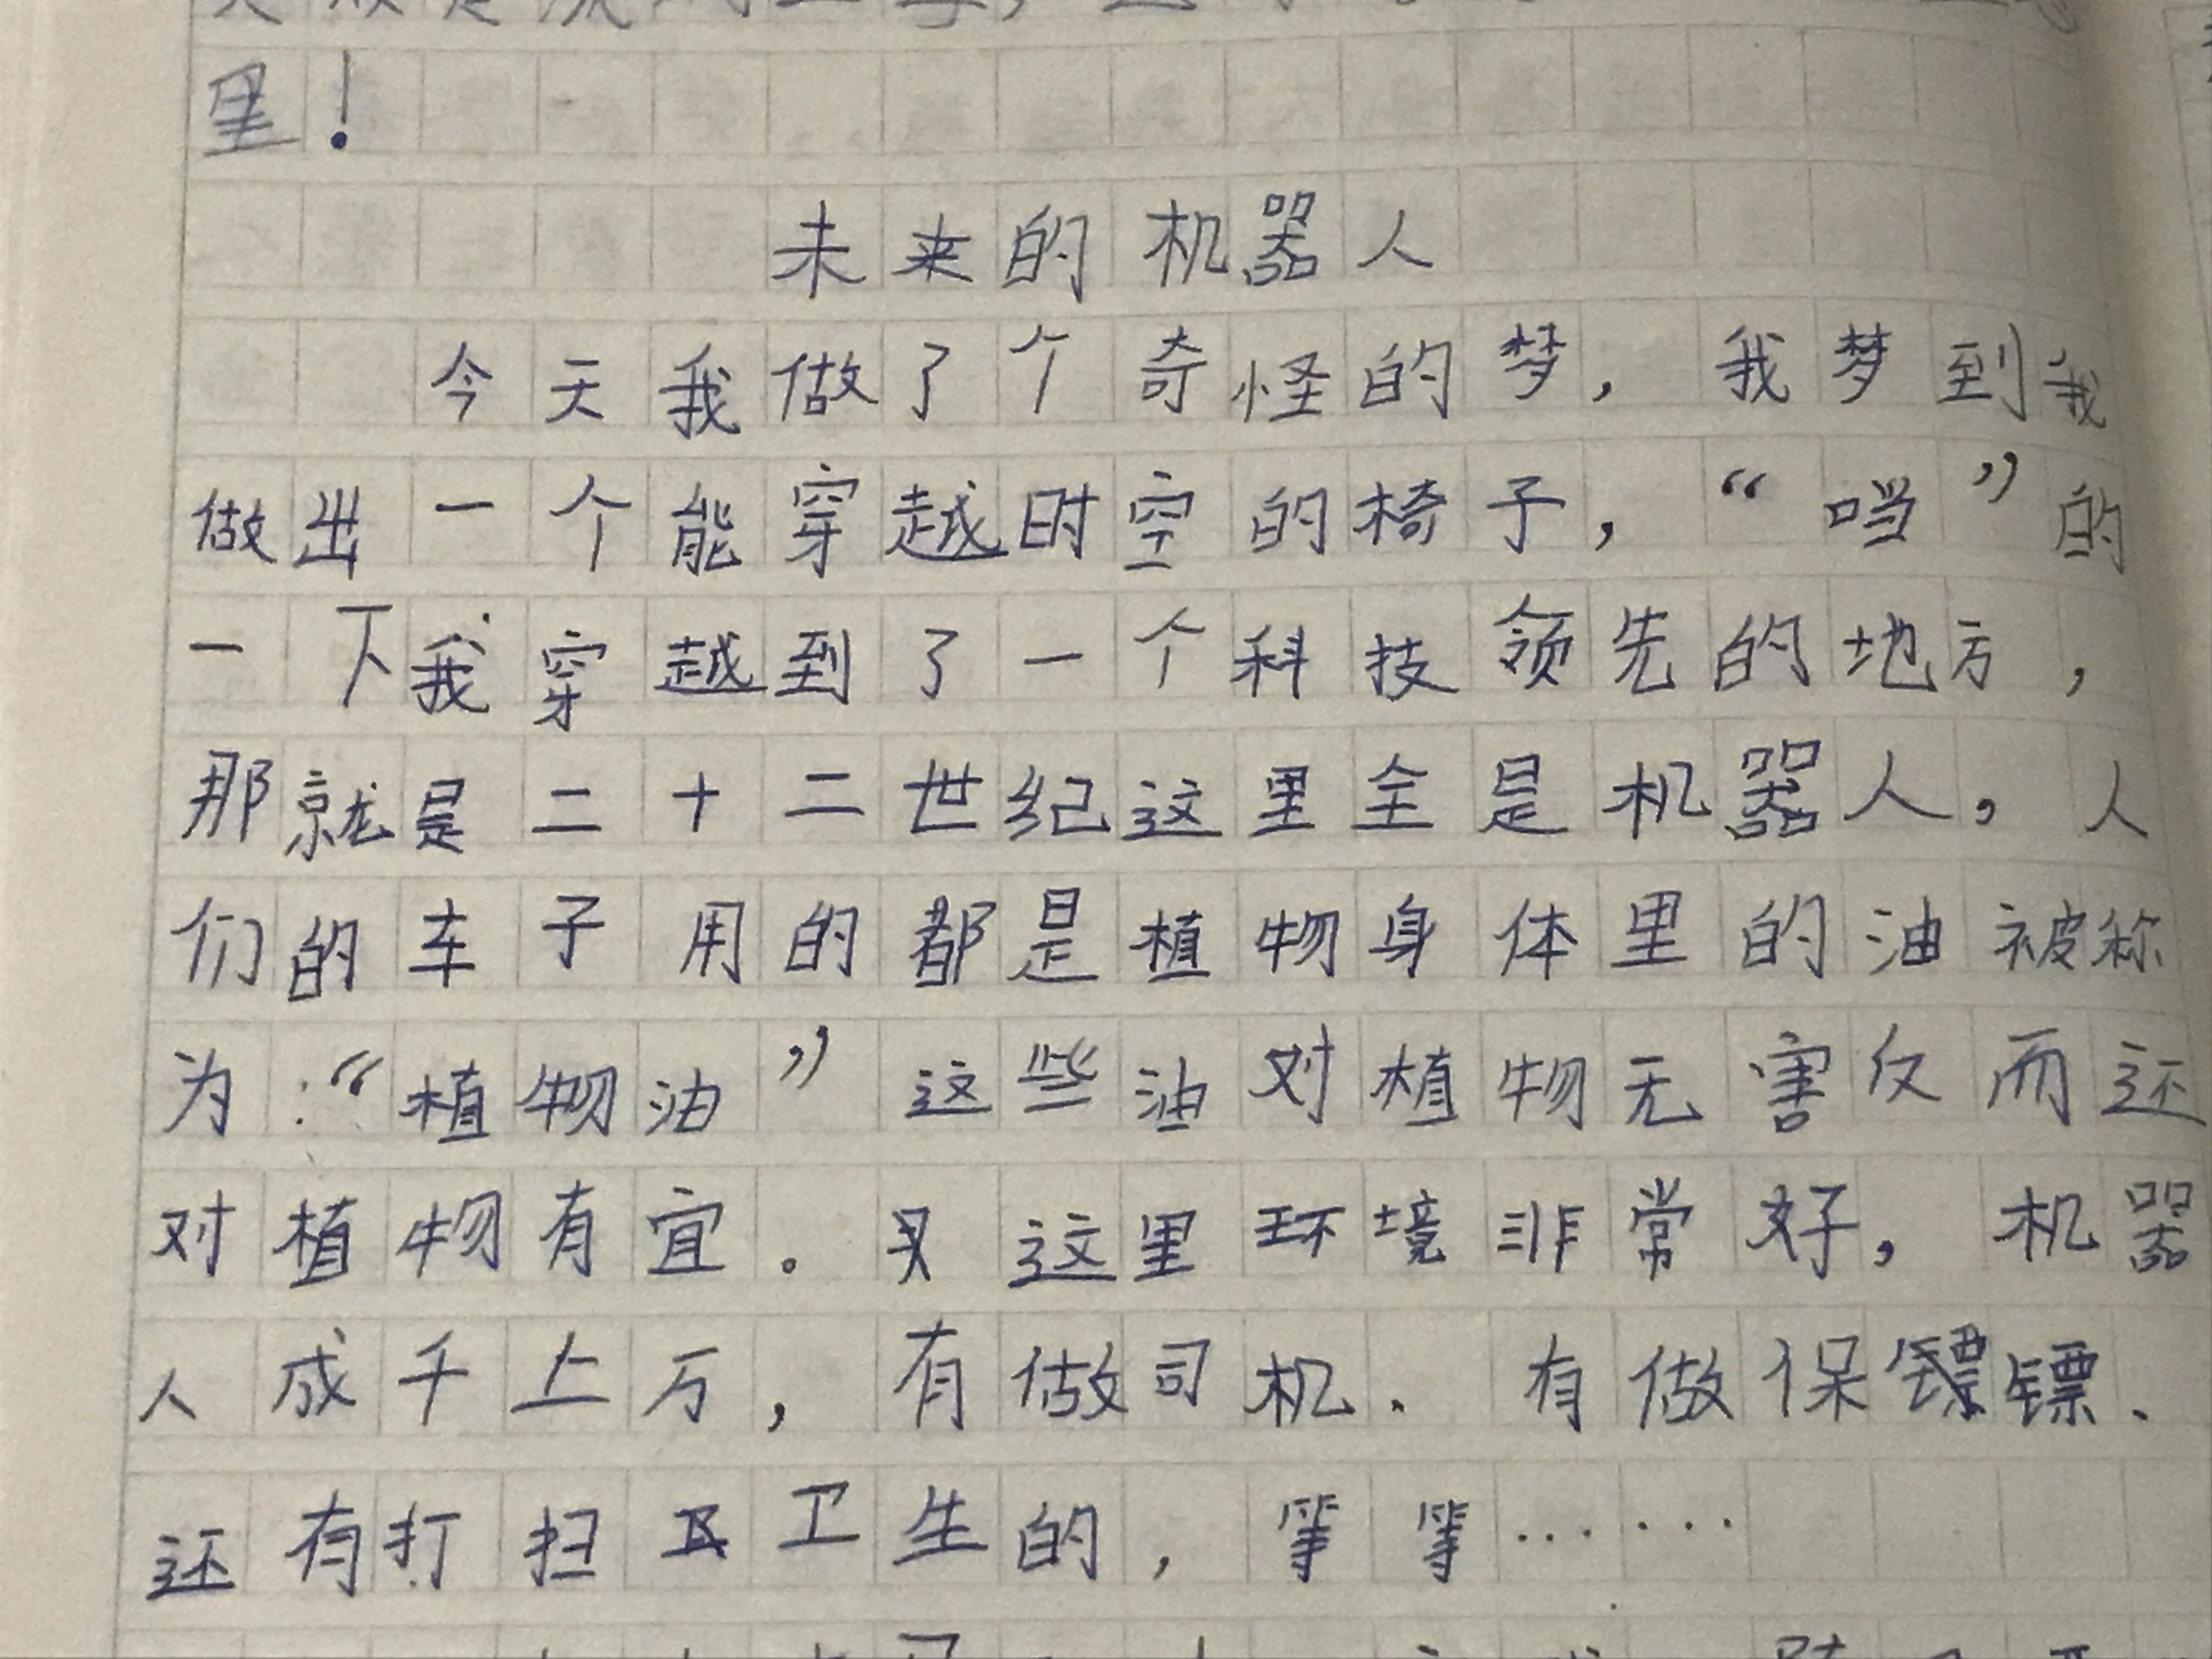 里！
未来的机器人
今天我做了个奇怪的梦，我梦到我
做出一个能穿越时空的椅子，“哟”的
一下我穿越到了一个科技领先的地方，
那就是二十二世纪这里全是机器人，人
们的车子用的都是植物身体里的油被称
为：“植物油”这些油对植物无害仅而还
对植物有宜。这里环境非常好，机器
人成千上万，有做司机、有做保镖、
还有打扫卫生的，等等……